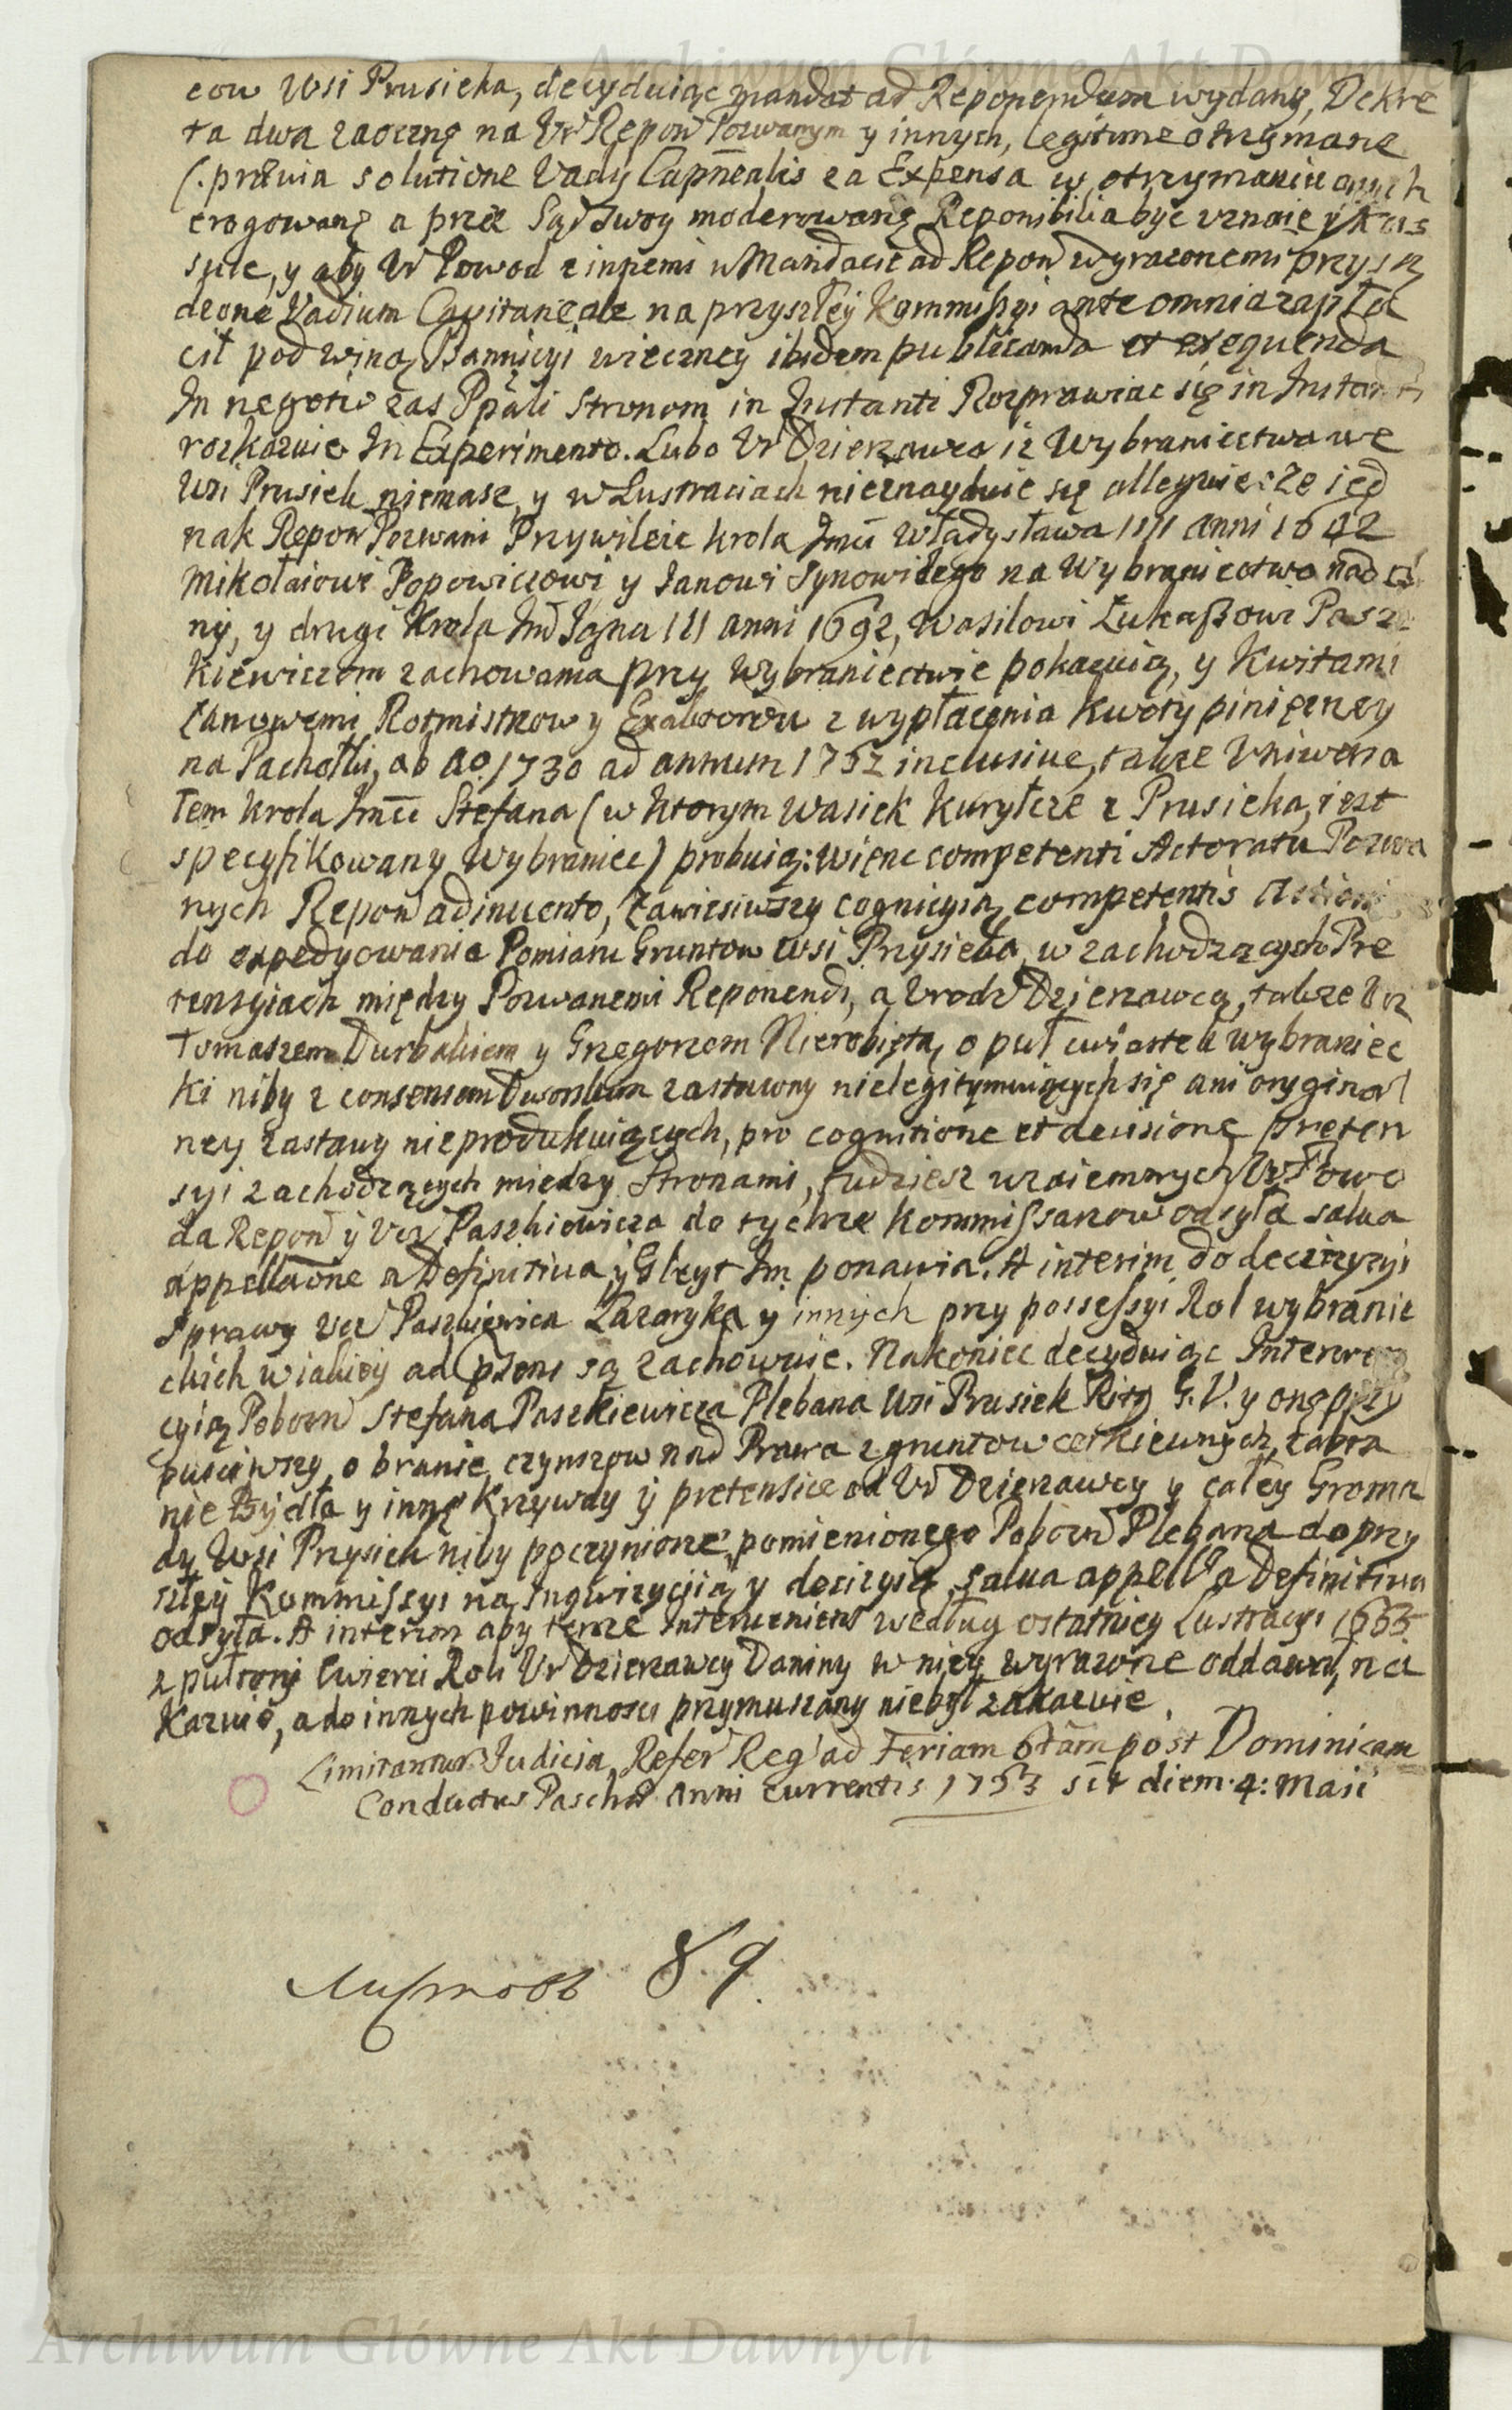 Archiwum Główne Akt Dawnych
cow Wsi Prusieka, decyduiąc mandat ad Reponendum wydany, Dekre
ta dwa zaoczne na Ur Repon Pozwanym y innych, legitime otrzymane
(. prævia solutione Vadÿ Capnealis za Expensa w otrzymaniu onych
erogowane a prze Sąd swoy moderowane Reponibilia być uznaie y Kas
suie, y aby Ur Powod z innemi w Mandacie ad Repon wyrazonemi przysą
dzone Vadium Capitaneale na przyszłey Kommissyi ante omnia zapła
cił pod winą Bannicyi wieczney ibidem publicanda et exequenda
In negotio zas Ppali Stronom in Instanti Rozprawiac się in Instanti
rozkazuie. In Experimento. Lubo Ur Dzierzawca iz Wybraniectwa we
Wsi Prusiek niemasz, y w Lustraciach nieznayduie się alleguie: ze ied
nak Repon Pozwani Przywileie krola Jmci Władysława IIII anni 1642
Mikołaiowi Popowiczowi y Janowi Synowi iego na Wybraniectwo nada
ny, y drugi Krola Jm Jana III anni 1692, Wasilowi Łukaszowi Pasz
kiewiczom zachowania przy Wybraniectwie pokazuią, y Kwitami
Łanowemi Rotmistrzow y Exaktorow z wypłacenia kwoty pinięzney
na Pachołki, ab Ao 1730 ad annum 1752 inclusive, takze Uniwersa
łem krola Jmci Stefana (w ktorym Wasiek Kuryłcze z Prusieka iest
specyfikowany Wybraniec) probuią: więc competenti Actoratu Pozwa
nych Repon adinvento, Zawiesiwszy cognicyią competentis
do expedyowania Pomiaru Gruntow Wsi Prysieka, w zachodzących Pre
tensyiach między Pozwanemi Reponend, a Urodz Dzierzawcą, takze Ur
Tomaszem Durbakiem y Grzegorzem Nierobiętą, o puł cwiartek wybraniec
ki niby z consensem Dworskim zastawny nielegitymuiących się ani oryginal
ney zastawy nieprodukuiących, pro cognitione et decisione preten
syi zachodzących między Stronami, tudziesz wzaiemnych Ur Powo
da Repon y Ucz Paszkiewicza do tychze Kommissarzow odsyła salva
appellaone a Definitiva y Gleyt Im ponawia. A interim do decizyiyi
sprawy Ucz Paszkiewicza Łazaryka y innych przy possessyi Rol wybranie
ckich w iakiey ad pzens są zachowuie. Nakoniec decyduiąc Interwen
cyią Pobozn Stefana Paszkiewicza Plebana Wsi Prusiek Ritg G. V. y onę przy
pusciwszy, o branie czynszow nad Prawa z gruntow cerkiewnych, zabra
nie Bydła y inne krzywdy y pretensie od Ur Dzierzawcy y całey Groma
dy Wsi Prysiek niby poczynione, pomienionego Pobozn Plebana do przy
szłey Kommissyi na Inqwizycyią y decizyią salva appellne a Definitiva
odsyła. A interim aby tenze Interwenient według ostatniey Lustracyi 1655
z pułtory cwierci Roli Ur Dzierzawcy Daniny w niey wyrazone oddawał, na
Kazuie, a do innych powinnosci przymuszany niebył zakazuie.
Limitantur Judicia Refer Reg ad Feriam 6tam post Dominicam
Conductus Paschæ anni currentis 1753 sct diem 4: Maii
Листовъ 89.
Archiwum Główne Akt Dawnych